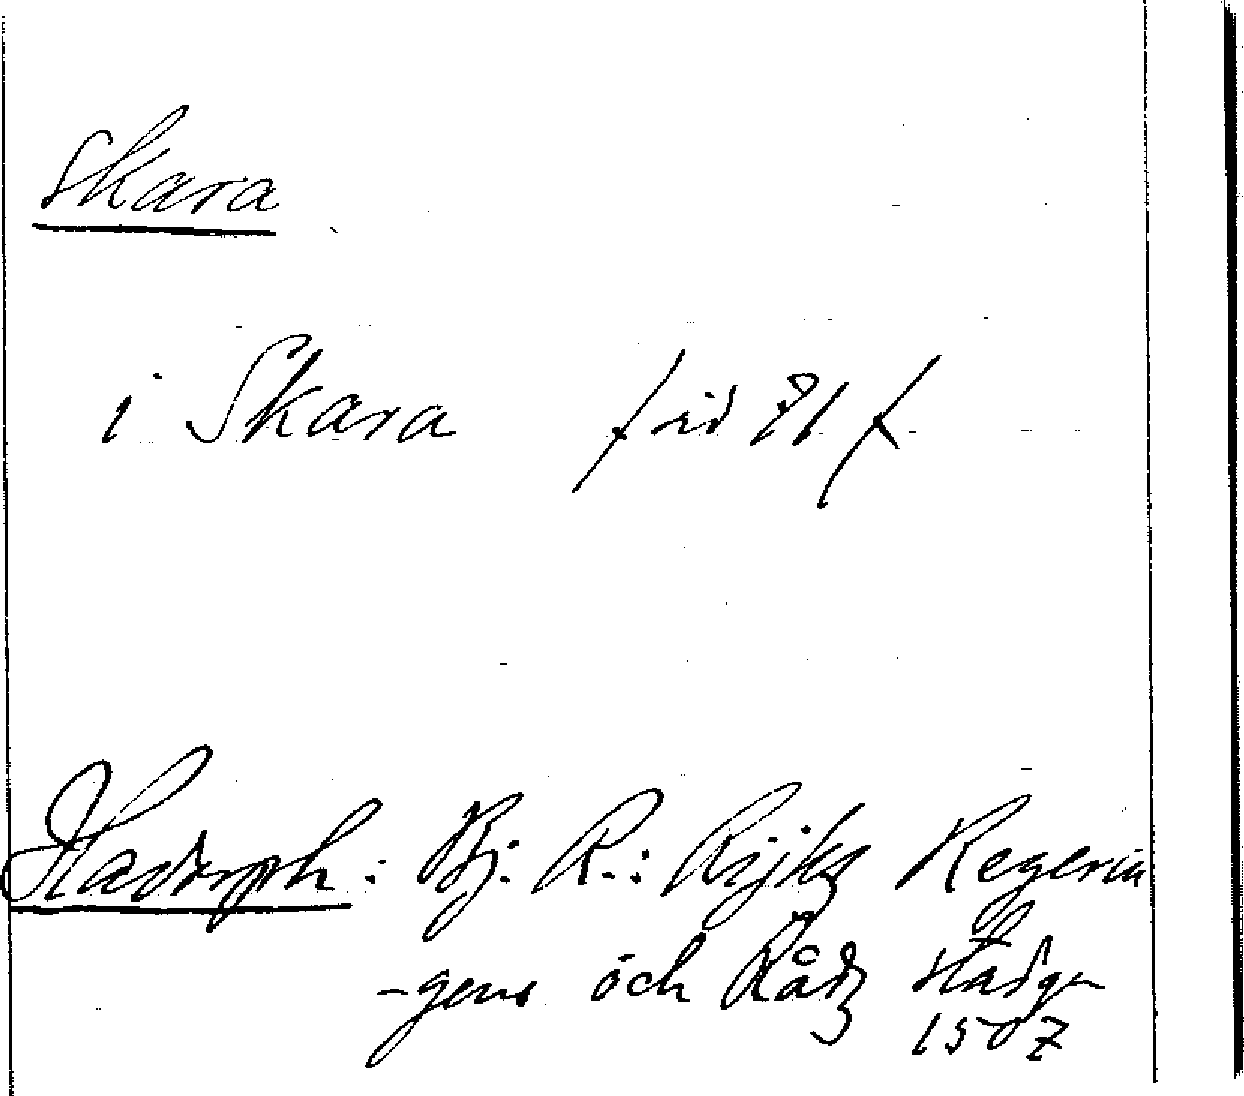 Skara
i Skara /sid 81/
Hadorph: Bj: R.: Rijkz Regerin
-gens och Rådz Stadgar
1507